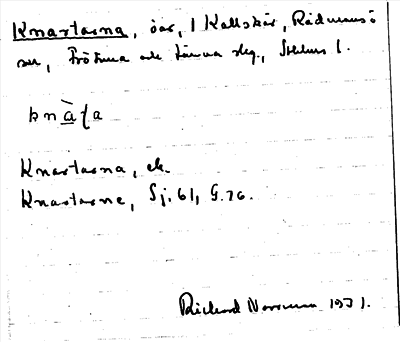 Knartarna, öar, / Kallskär, Rådmansö
sn, Frötuna och Länna slg., Sthlms l.
knàʈa
Knartarna, ek.
Knartarne, Sj. 61, G. 76.
Rickard 1931.